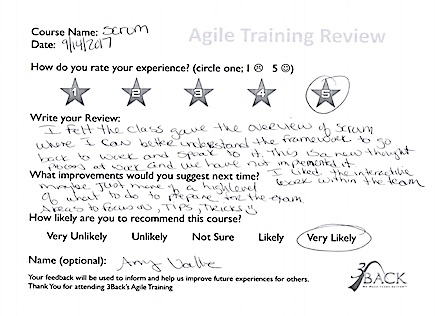 Course Name: Scrum
Agile Training Review
Date: 9/14/2017
How do you rate your experience? (circle one; 1 ☹ 5 ☺)
1 2 3 4 5
Write your Review:
I felt the class gave the overview of scrum
where I can better understand the framework to go
back to work and speak to it. This is a new thought
process at work and we have not implemented it
I liked the interactive
What improvements would you suggest next time?
work within the team
maybe just more of a high level
of what to do to prepare for the exam
Areas to focus on, TIPS, Tricks
How likely are you to recommend this course?
Very Unlikely Unlikely Not Sure Likely Very Likely
Name (optional): Amy
Your feedback will be used to inform and help us improve future experiences for others.
Thank You for attending 3Back's Agile Training
3BACK